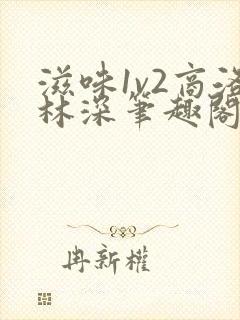 滋味1v2高洛
林深笔趣阁
冉新權